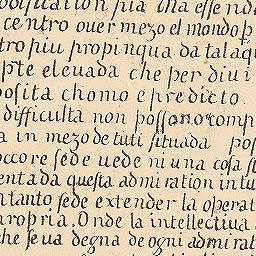 sition sua una essend
centro ouer mezo el mondo p
tro piu propinqua da tal aq
pte eleuada che per diui
posita chomo e predicto.
difficulta non possono comp
a in mezo de tuti situada pos
occore sede uede ni una cosa st
entada questa admiration in tu
ntanto sede extender la operat
ropria. Onde la intellectiua
che se ua degna de ogni admirat